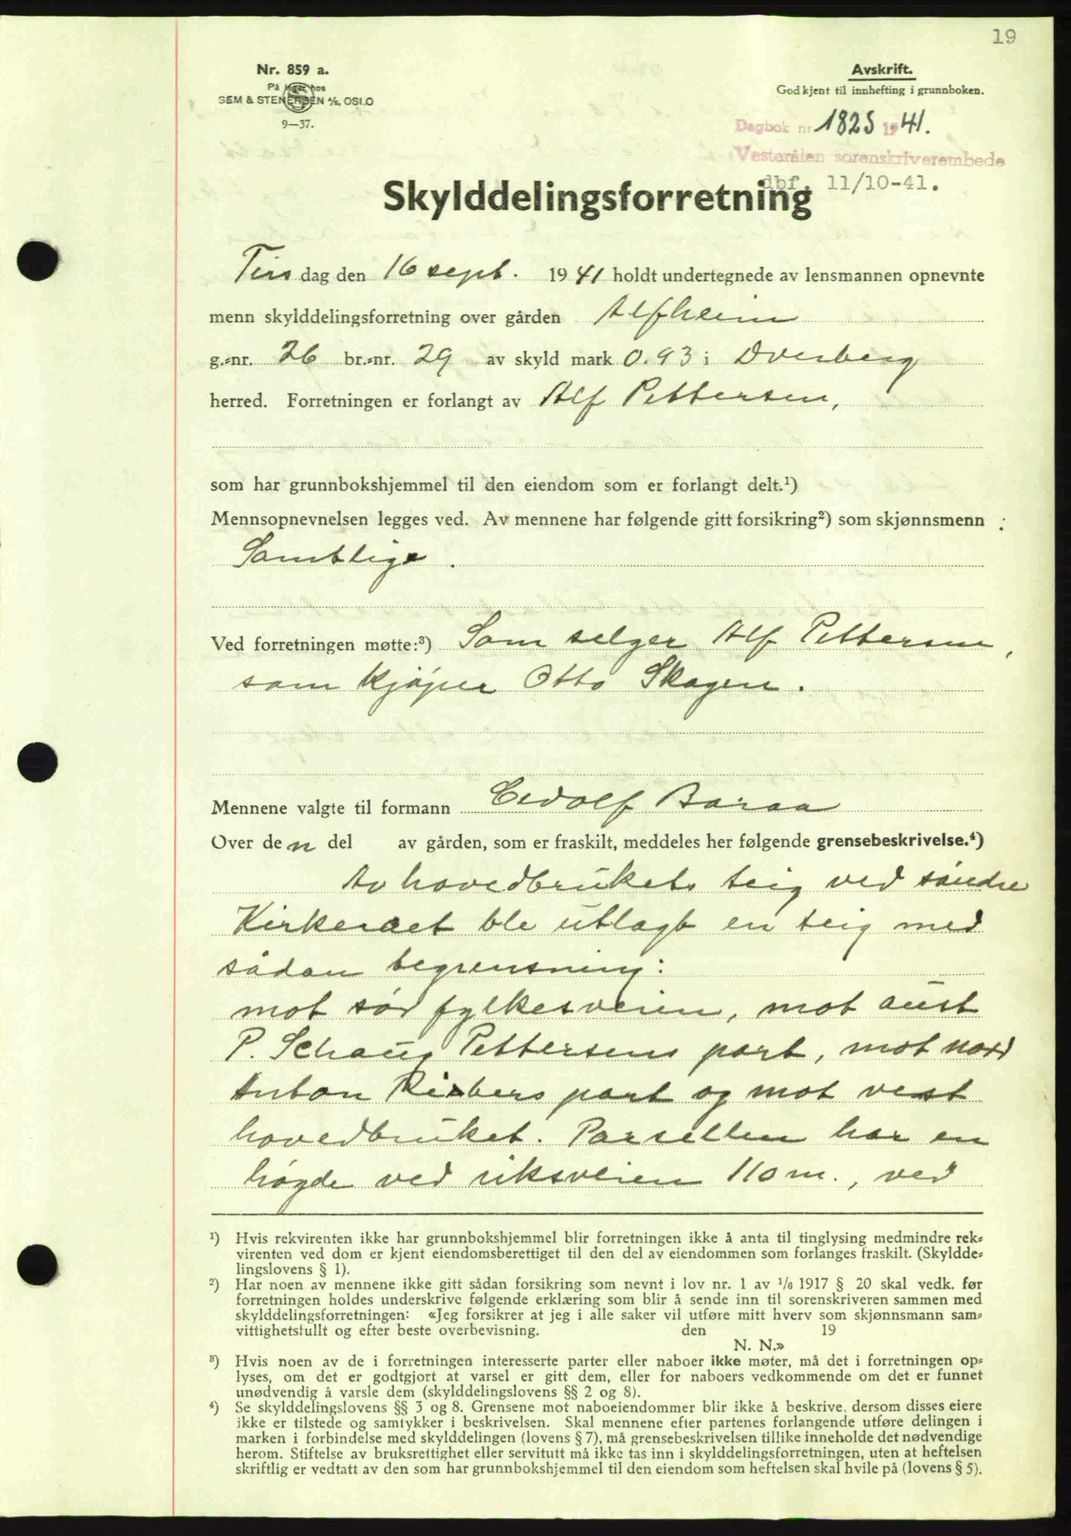 19
Nr. 859 a.
På lager hos
SEM & STENERSEN A/S, OSLO
9—37.
Avskrift.
Godkjent til innhefting i grunnboken.
Dagbok nr 1825 1941.
Vesterålen sorenskriverembede
dbf. 11/10-41.
Skylddelingsforretning
Tirsdag den 16 sept. 1941 holdt undertegnede av lensmannen opnevnte
menn skylddelingsforretning over gården Alfheim
g.-nr. 26 br.-nr. 29 av skyld mark 0.93 i Dverberg
herred. Forretningen er forlangt av Alf Pettersen,
som har grunnbokshjemmel til den eiendom som er forlangt delt.¹)
Mennsopnevnelsen legges ved. Av mennene har følgende gitt forsikring²) som skjønnsmenn :
Samtlige.
Ved forretningen møtte:³) Som selger Alf Pettersen,
som kjøper Otto Skogen.
Mennene valgte til formann Edolf Baraa
Over den del av gården, som er fraskilt, meddeles her følgende grensebeskrivelse.⁴)
Av hovedbrukets teig ved søndre
Kirkeraet ble utlagt en teig med
sådan begrensning:
mot sør fylkesveien, mot aust
P. Schaug Pettersens part, mot nord
Anton part og mot vest
hovedbruket. Parsellen har en
høgde ved riksveien 110 m., ved
¹) Hvis rekvirenten ikke har grunnbokshjemmel blir forretningen ikke å anta til tinglysing medmindre rek-
virenten ved dom er kjent eiendomsberettiget til den del av eiendommen som forlanges fraskilt. (Skyldde-
lingslovens § 1).
²) Har noen av mennene ikke gitt sådan forsikring som nevnt i lov nr. 1 av ¹/₆ 1917 § 20 skal vedk. før
forretningen holdes underskrive følgende erklæring som blir å sende inn til sorenskriveren sammen med
skylddelingsforretningen: «Jeg forsikrer at jeg i alle saker vil utføre mitt hverv som skjønnsmann sam-
vittighetsfullt og efter beste overbevisning. den 19
N. N.»
³) Hvis noen av de i forretningen interesserte parter eller naboer ikke møter, må det i forretningen op-
lyses, om det er godtgjort at varsel er gitt dem, eller for naboers vedkommende om det er funnet
unødvendig å varsle dem (skylddelingslovens §§ 2 og 8).
⁴) Se skylddelingslovens §§ 3 og 8. Grensene mot naboeiendommer blir ikke å beskrive, dersom disses eiere
ikke er tilstede og samtykker i beskrivelsen. Skal mennene efter partenes forlangende utføre delingen i
marken i forbindelse med skylddelingen (lovens § 7), må grensebeskrivelsen tillike inneholde det nødvendige
herom. Stiftelse av bruksrettighet eller servitutt må ikke tas inn i skylddelingsforretningen, uten at heftelsen
skriftlig er vedtatt av den som har grunnbokshjemmel til den eiendom som heftelsen skal hvile på (lovens § 5).